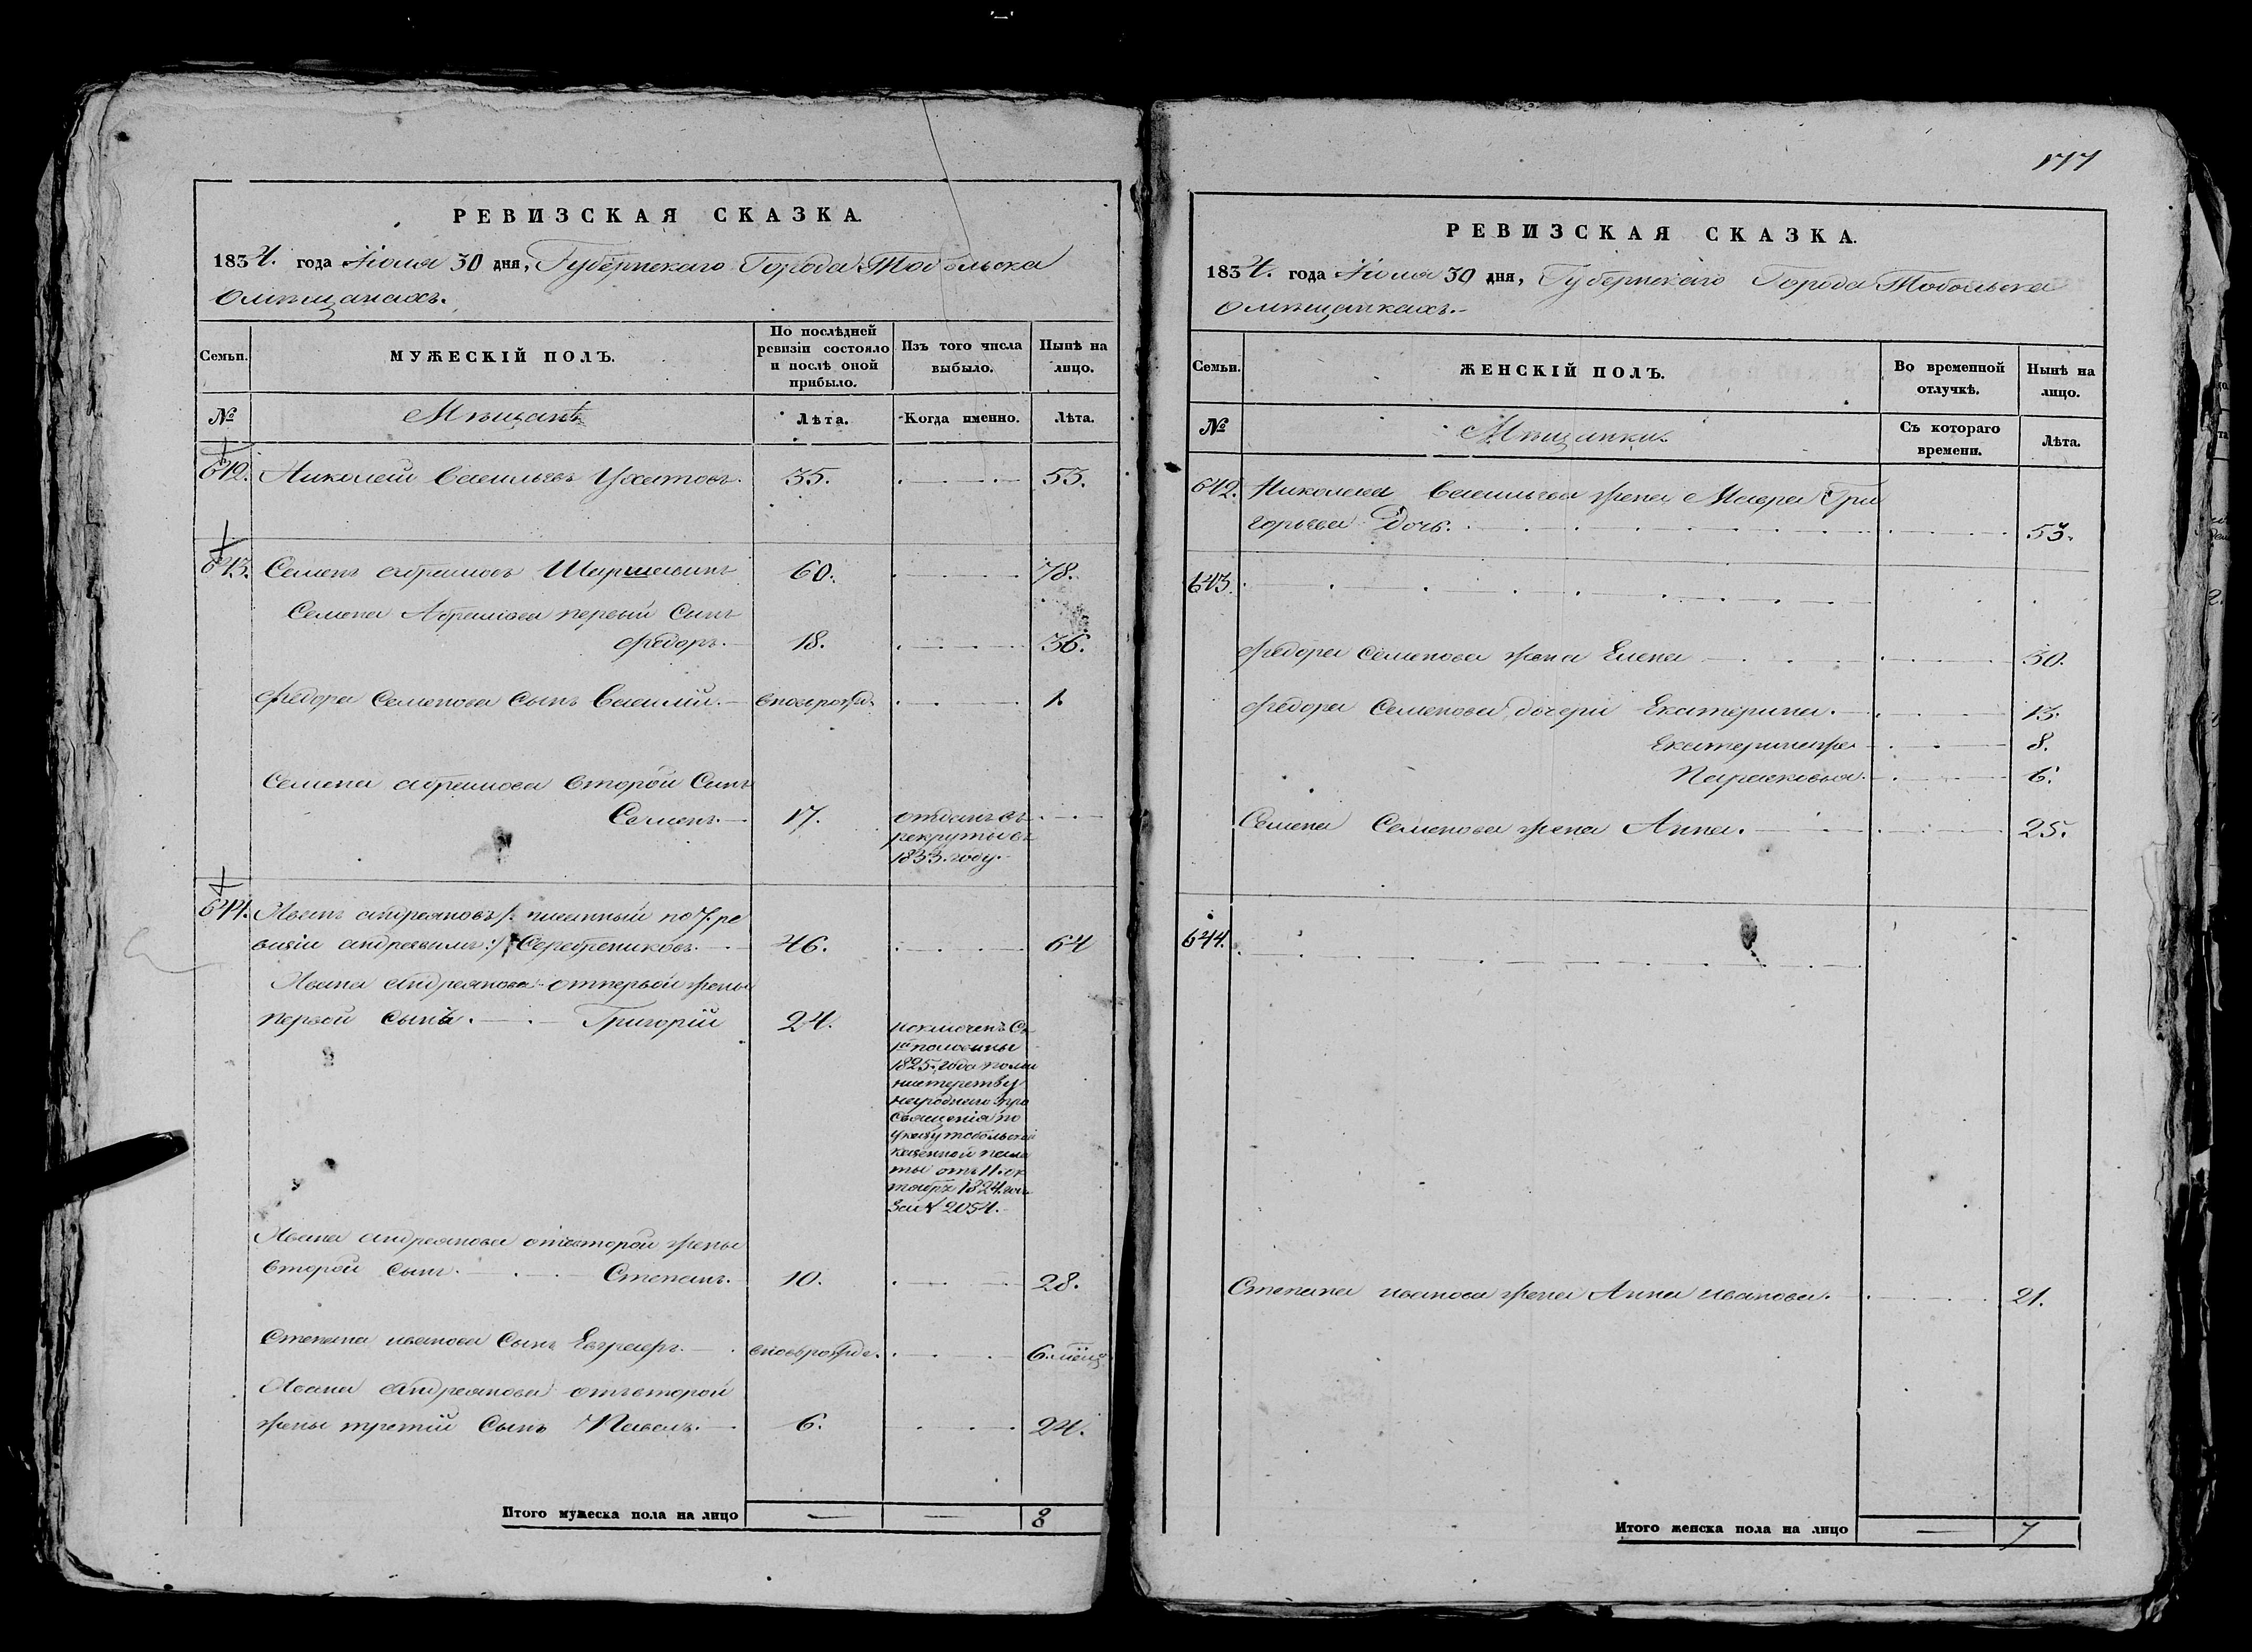 РЕВИЗСКАЯ СКАЗКА.
1834. года Іюля 30 дня, Губернскаго Города Тобольска
О мѣщанахъ.
Семьи.
МУЖЕСКІЙ ПОЛЪ.
По послѣдней ревизіи состояло и послѣ оной прибыло.
Изъ того числа выбыло.
Нынѣ на лицо.
№
Мѣщанѣ
Лѣта.
Когда именно.
Лѣта.
642. Николай Васильевъ 35. 53.
643. Семенъ Абрамовъ 60. 78.
Семена Абрамова первый Сынъ
Федоръ. 18. 36.
Федора Семенова Сынъ Василій. вновьрожд. 1.
Семена Абрамова Второй Сынъ
Семенъ. 17. отданъ въ
рекруты въ
1833. году.
644. Иванъ Андреяновъ /: писанный по 7. ре
визіи Андреевымъ :/ Серебрениковъ. 46. 64
Ивана Андреянова отпервой жены
первой Сынъ. Григорій 24. исключенъ Съ
1й половины
1825. года поми
нистерству
народнаго про
свѣщенія по
указу тобольской
казенной пала
ты отъ 11. ок
тября 1824. года
За № 2054.
Ивана Андреянова отвторой жены
Второй Сынъ. Степанъ. 10. 28.
Степана Иванова Сынъ Евграфъ. вновьрожде. 6. мѣсяц
Ивана Андреянова отвторой
жены третій Сынъ Павелъ. 6. 24.
Итого мужеска пола на лицо — — 8
177
РЕВИЗСКАЯ СКАЗКА.
1834. года Іюля 30 дня, Губернскаго Города Тобольска
О мѣщанкахъ.
Семьи.
ЖЕНСКІЙ ПОЛЪ.
Во временной отлучкѣ.
Нынѣ на лицо.
№
Мѣщанки.
Съ котораго времени.
Лѣта.
642. Николая Васильева жена Мавра Гри
горьева Дочь. 53.
643.
Федора Семенова жена Елена 30.
Федора Семенова дочери Екатерина. 13.
Екатеринажа 8.
Парасковья. 6.
Семена Семенова жена Анна. 25.
644.
Степана Иванова жена Анна Иванова. 21.
Итого женска пола на лицо — 7